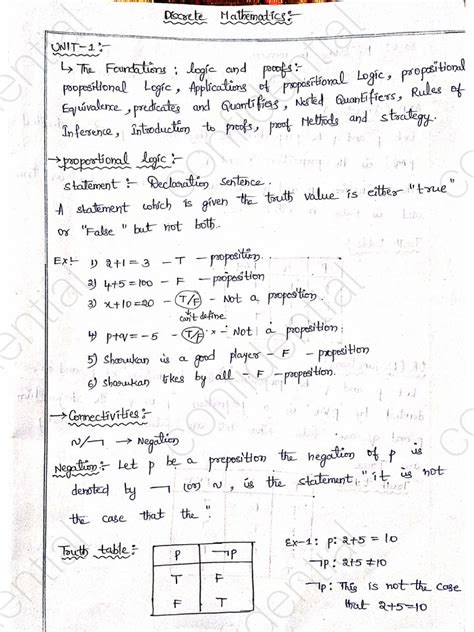 Discrete Mathematics :-
UNIT-1 :-
↳ The Foundations ; logic and proofs :-
propositional Logic, Applications of propositional Logic, propositional
Equivalence, predicates and Quantifiers, Nested Quantifiers, Rules of
Inference, Introduction to proofs, proof Methods and strategy.
→ proportional logic :-
statement :- Declaration sentence.
A statement which is given the truth value is either "true"
or "False" but not both.
Ex:- 1) 2+1=3 - T - proposition.
2) 4+5=100 - F - proposition
3) x+10=20 - T/F - Not a proposition.
can't define
4) p+q=-5 - T/F × - Not a proposition;
5) Sharukan is a good player - F - proposition
6) Sharukan likes by all - F - proposition.
→ Connectivities :-
~/¬ → Negation
Negation :- Let p be a preposition the negation of p is
denoted by ¬ (or) ~, is the statement "it is not
the case that the".
Truth table :-
P ¬P
T F
F T
Ex-1: p: 2+5=10
¬p: 2+5≠10
¬p: This is not the case
that 2+5=10
confidential
confidential
confidential
confidential